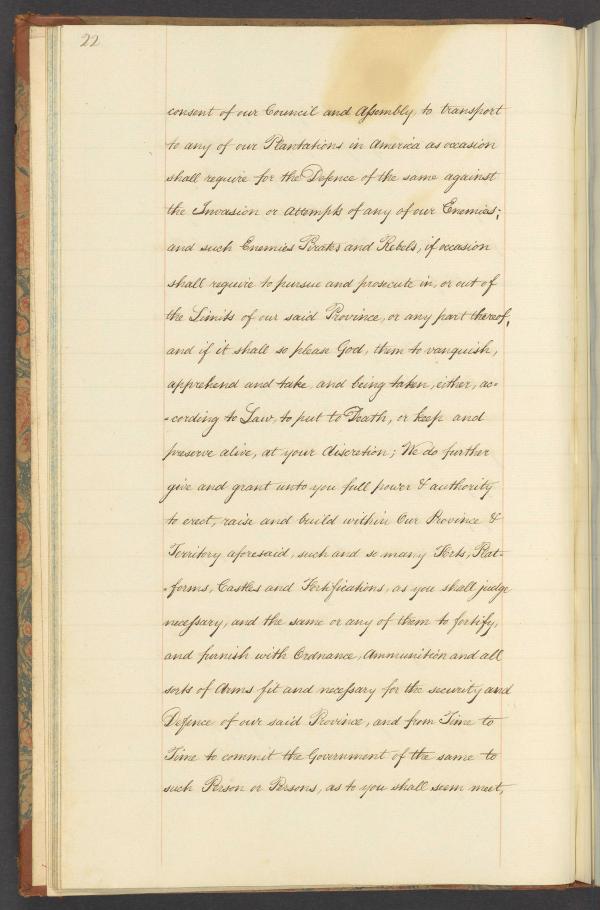 22
consent of our Council and Assembly, to transport
to any of our Plantations in America as occasion
shall require for the Defence of the same against
the Invasion or attempts of any of our Enemies;
and such Enemies Pirates and Rebels, if occasion
shall require to pursue and prosecute in, or out of
the Limits of our said Province, or any part thereof,
and if it shall so please God, them to vanquish,
apprehend and take, and being taken, either, ac-
-cording to Law, to put to Death, or keep and
preserve alive, at your discretion; We do further
give and grant unto you full power & authority
to erect, raise and build within Our Province &
Territory aforesaid, such and so many Forts, Plat-
-forms, Castles and Fortifications, as you shall judge
necessary, and the same or any of them to fortify,
and furnish with Ordnance, Ammunition and all
sorts of Arms fit and necessary for the security and
Defence of our said Province, and from Time to
Time to commit the Government of the same to
such Person or Persons, as to you shall seem meet,